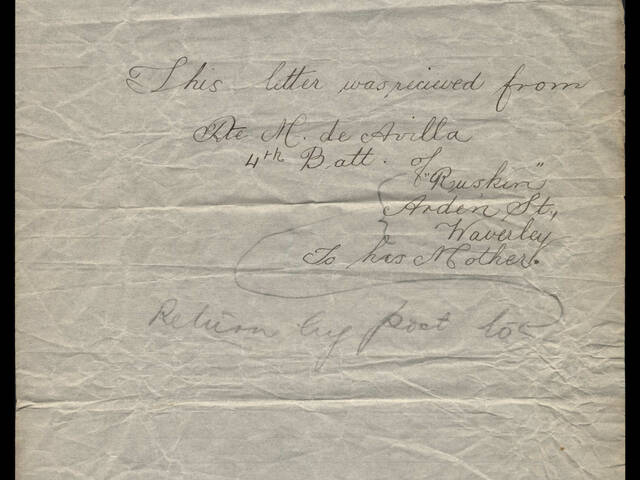 This letter was recieved from
Pte M. de Avilla
4th Batt. of
"Ruskin"
Arden St,
Waverley
To his Mother.
Return by post to